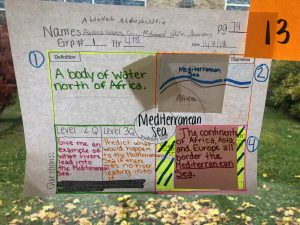 13
Names
Grp# 1 Hr 4th
①
Definition
A body of water
north of Africa.
Illustration
②
Mediterranean
Sea
Africa
Mediterranean
Sea
Questions:
Level 2 Q
Give me an
example of
what rivers
lead into
the Mediterranean
Sea.
Level 3Q
Predict what
would happen
to the Mediterranean
Sea if there
was no river
leading into
it.
The continents
of Africa, Asia,
and Europe all
border the
Mediterranean
Sea.
④